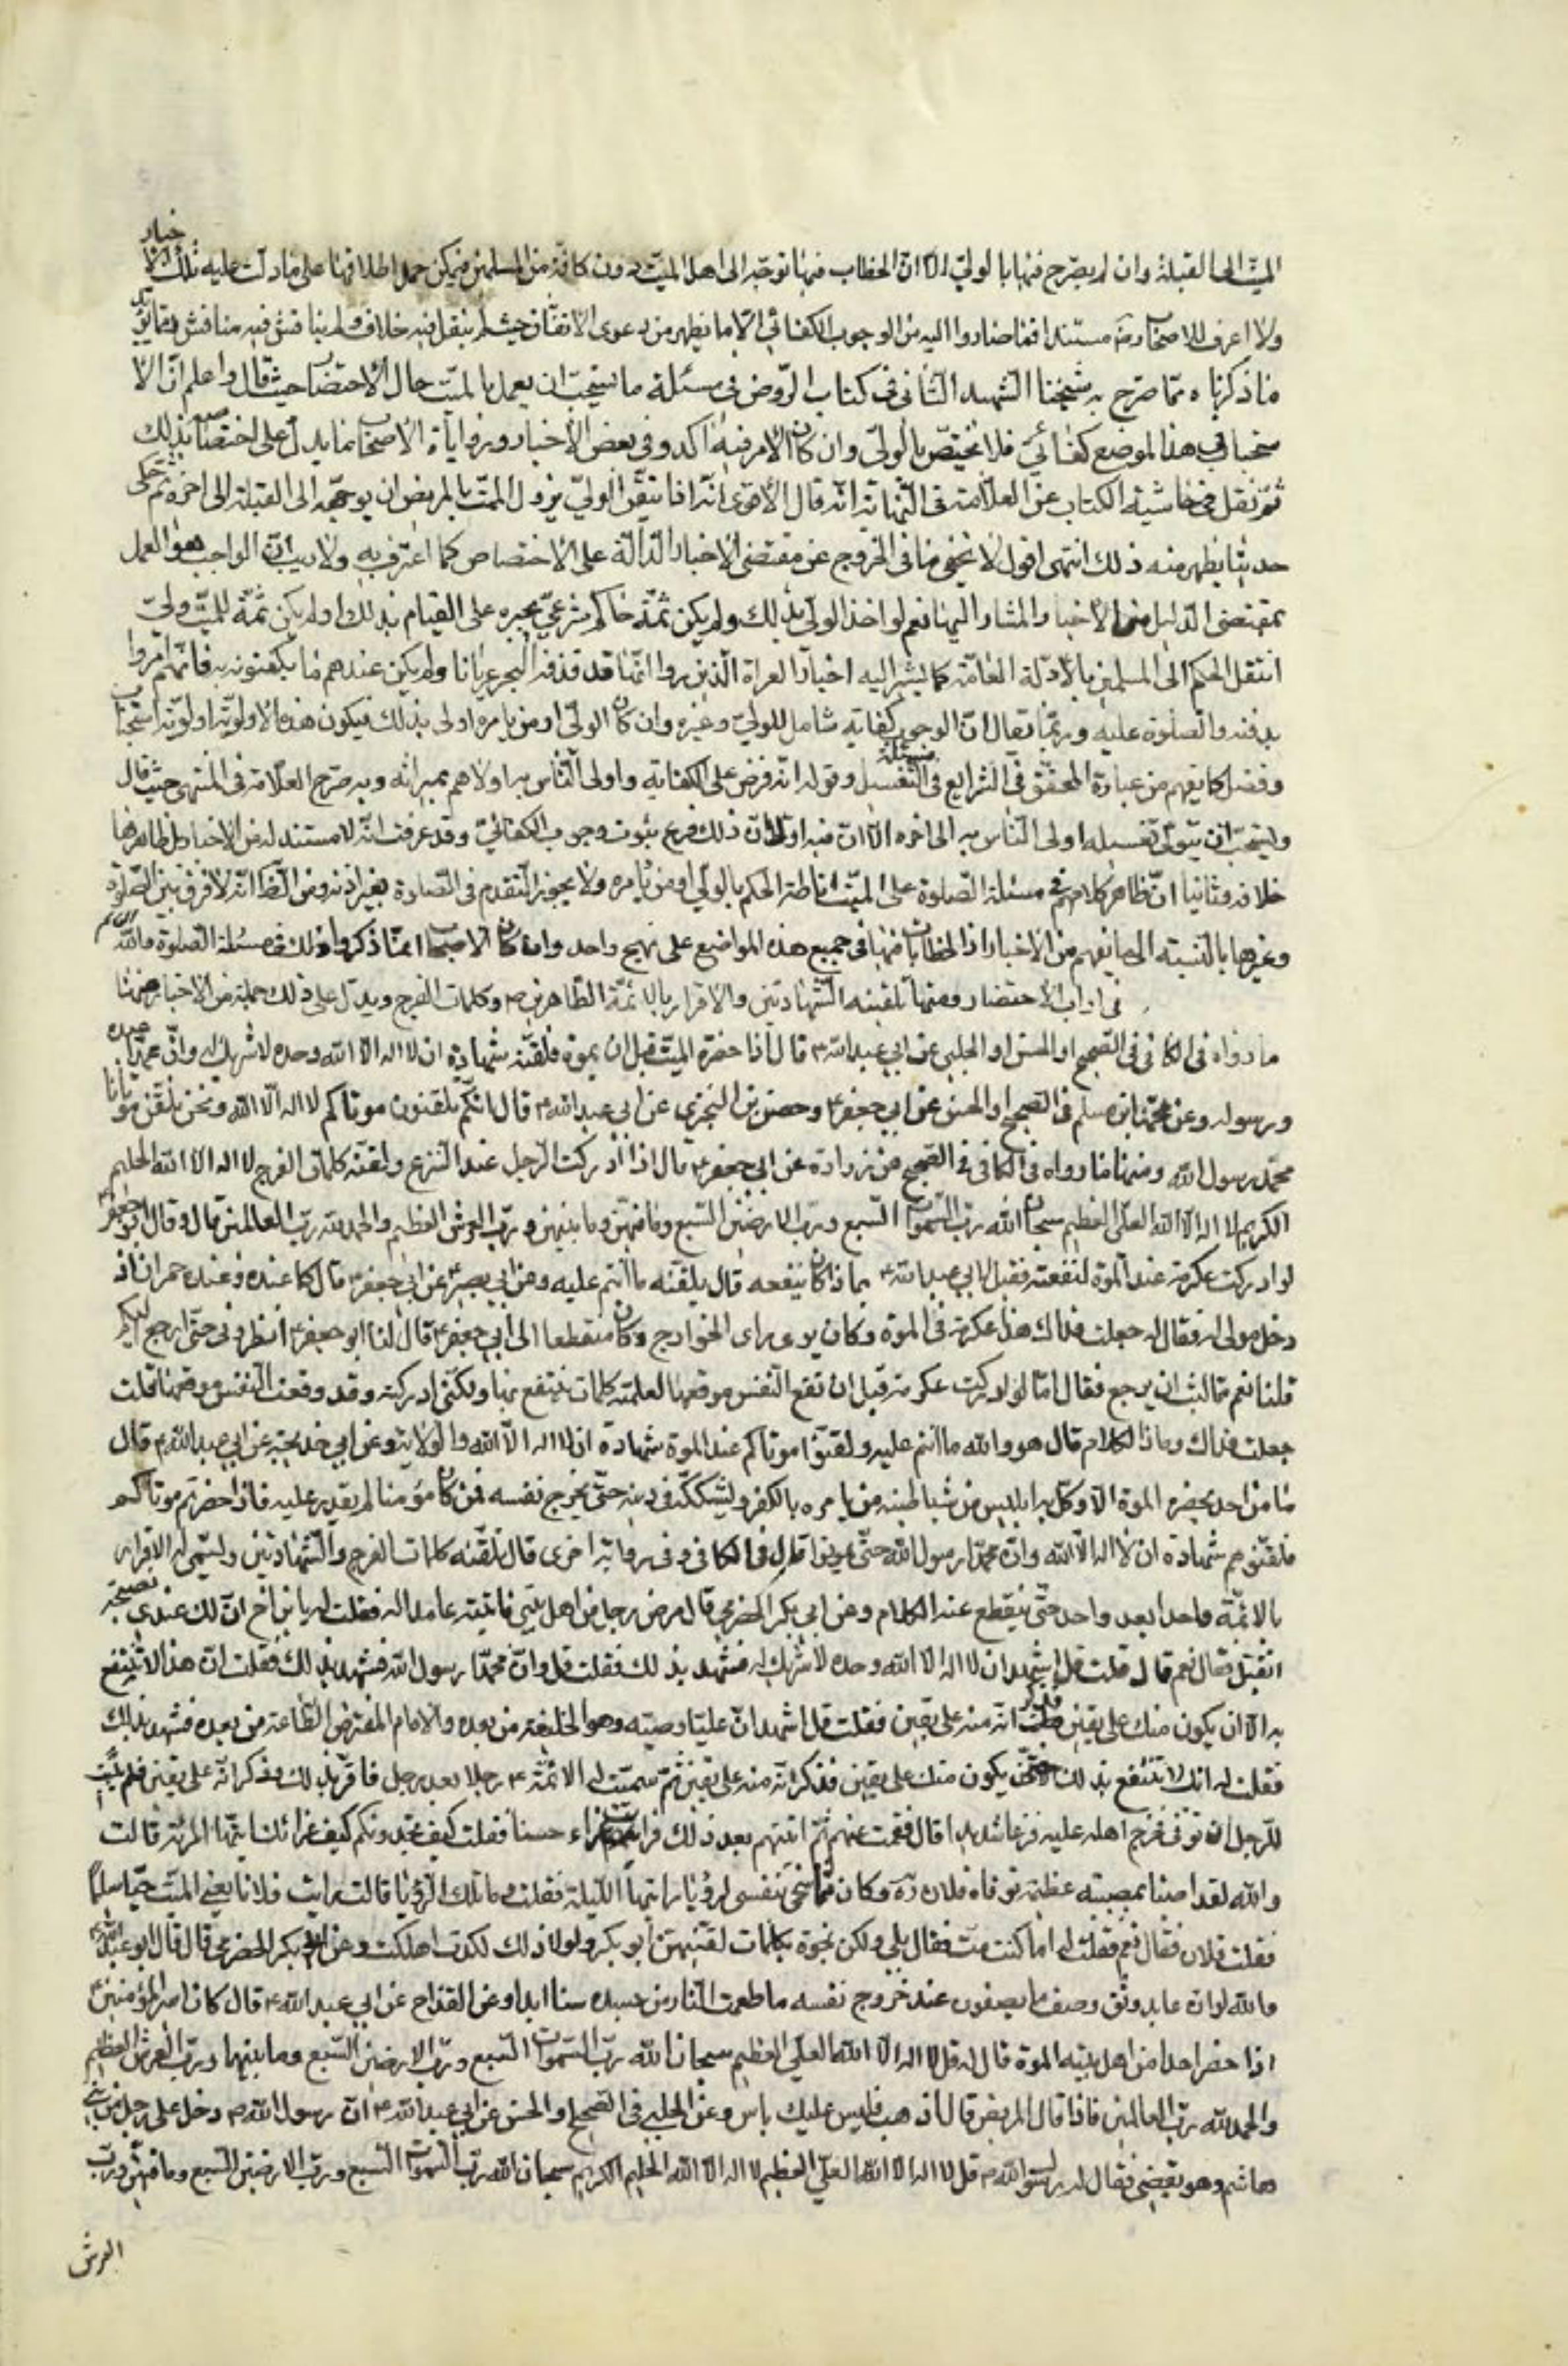 الميت الى القبلة وان لم يصرح فيها بالولي الا ان الخطاب فيها توجه الى اهل الميت دون كافة المسلمين فيمكن حمل اطلاقها على ما دلت عليه تلك الاخبار
ولا اعرف للاصحاب رض مستندا فيما صاروا اليه من الوجوب الكفائي الا ما يظهر من دعوى الاتفاق حيث لم ينقل فيه خلاف ولم يناقش فيه مناقش
ما ذكرناه مما صرح به شيخنا الشهيد الثاني في كتاب الروض في مسئلة ما يستحب ان يعمل بالميت حال الاحتضار حيث قال واعلم ان الا
ستحباب في هذا الموضع كفائي فلا يختص بالولي وان كان الامر فيه اكد وفي بعض الاخبار وروايات الاصحاب ما يدل على اختصاصه بذلك
ثم نقل في حاشية الكتاب عن العلامة في النهاية انه قال الاقوى انه اذا تيقن الولي نزول الموت بالمريض ان يوجهه الى القبلة الى اخره ثم حكى
حديثا يظهر منه ذلك انتهى اقول لا يخفى ما في الخروج عن مقتضى الاخبار الدالة على الاختصاص كما اعترف به ولا ريب ان الواجب هو العمل
بمقتضى الدليل من الاخبار المشار اليها نعم لو اخذ الولي بذلك ولم يكن ثمة حاكم شرعي يجبره على القيام بذلك او لم يكن ثمة للميت ولي
انتقل الحكم الى المسلمين بالادلة العامة كما يشير اليه اخبار العراة الذين راوا ميتا قد قذفه البحر عريانا ولم يكن عندهم ما يكفنونه به فانهم امروا
بدفنه والصلوة عليه وربما يقال ان الوجوب كفاية شامل للولي وغيره وان كان الولي او من يامره اولى بذلك فيكون هذه الاولوية اولوية استحباب
وفضل كما يفهم من عبارة المحقق في الشرايع في مسئلة التغسيل وقوله انه فرض على الكفاية واولى الناس به اولاهم بميراثه وبه صرح العلامة في المنتهى حيث قال
ويستحب ان يتولى تغسيله اولى الناس به الى اخره الا ان فيه اولا ان ذلك فرع ثبوت وجوب الكفائي وقد عرفت انه لا مستند له من الاخبار بل ظاهرها
خلافه وثانيا ان ظاهر كلامهم في مسئلة الصلوة على الميت اناطة الحكم بالولي او من يامره ولا يجوز التقدم في الصلوة بغير اذنه ومن الظاهر انه لا فرق بين الصلوة
وغيرها بالنسبة الى ما يفهم من الاخبار اذ الخطابات فيها في جميع هذه المواضع على نهج واحد وان كان الاصحاب انما ذكروا ذلك في مسئلة الصلوة والله العالم
في اداب الاحتضار ومنها تلقينه الشهادتين والاقرار بالائمة الطاهرين ع وكلمات الفرج ويدل على ذلك جملة من الاخبار منها
ما رواه في الكافي في الصحيح او الحسن او الحلبي عن ابي عبد الله ع قال اذا حضرت الميت قبل ان يموت فلقنه شهادة ان لا اله الا الله وحده لا شريك له وان محمدا عبده
ورسوله وعن محمد بن مسلم في الصحيح او الحسن عن ابي جعفر ع وحفص بن البختري عن ابي عبد الله ع قال انكم تلقنون موتاكم لا اله الا الله ونحن نلقن موتانا
محمد رسول الله ومنها ما رواه في الكافي في الصحيح عن زرارة عن ابي جعفر ع قال اذا ادركت الرجل عند النزع ولقنه كلمات الفرج لا اله الا الله الحليم
الكريم لا اله الا الله العلي العظيم سبحان الله رب السموات السبع ورب الارضين السبع وما فيهن وما بينهن ورب العرش العظيم والحمد لله رب العالمين قال وقال ابو جعفر ع
لو ادركت عكرمة عند الموت لنفعته فقيل لابي عبد الله ع بماذا كان ينفعه قال يلقنه ما انتم عليه وعن ابي بصير عن ابي جعفر ع قال كنا عنده وعنده حمران اذ
دخل مولى له فقال له جعلت فداك هذا عكرمة في الموت وكان يرى راى الخوارج وكان منقطعا الى ابي جعفر ع قال لنا ابو جعفر ع انظروني حتى ارجع اليكم
قلنا نعم فما لبث ان يرجع فقال اما لو ادركت عكرمة قبل ان تقع النفس موقعها لعلمته كلمات ينتفع بها ولكني ادركته وقد وقعت النفس موقعها قلت
جعلت فداك وما ذا الكلام قال هو والله ما انتم عليه ولقنوا موتاكم عند الموت شهادة ان لا اله الا الله والولاية وعن ابي خديجة عن ابي عبد الله ع قال
ما من احد يحضره الموت الا وكل به ابليس من شياطينه من يامره بالكفر ويشككه في دينه حتى يخرج نفسه فمن كان مؤمنا لم يقدر عليه فاذا حضرتم موتاكم
فلقنوهم شهادة ان لا اله الا الله وان محمدا رسول الله حتى يموتوا قال في الكافي وفي رواية اخرى قال تلقنه كلمات الفرج والشهادتين وتسمي له الاقرار
بالائمة واحدا بعد واحد حتى ينقطع عنه الكلام وعن ابي بكر الحضرمي قال مرض رجل من اهل بيتي فاتيته عائدا له فقلت له يا بن اخ ان لك عندي نصيحة
اتقبل فقال نعم قال قلت قل اشهد ان لا اله الا الله وحده لا شريك له فشهد بذلك فقلت قل وان محمدا رسول الله فشهد بذلك فقلت ان هذا لا تنتفع
به الا ان يكون منك على يقين فذكر انه منه على يقين فقلت قل اشهد ان عليا وصيه وهو الخليفة من بعده والامام المفترض الطاعة من بعده فشهد بذلك
فقلت له انك لا تنتفع بذلك حتى يكون منك على يقين فذكر انه منه على يقين ثم سميت له الائمة ع رجلا بعد رجل فاقر بذلك وذكر انه على يقين فلم يلبث
الرجل ان توفي فجزع اهله عليه جزعا شديدا قال فغبت عنهم ثم اتيتهم بعد ذلك فرايت عزاء حسنا فقلت كيف تجدونكم كيف عزائك ايتها المرئة قالت
والله لقد اصبنا بمصيبة عظيمة بوفاة فلان ره وكان مما سخى بنفسي لرؤيا رايتها الليلة فقلت وما تلك الرؤيا قالت رايت فلانا يعني الميت حيا سليما
فقلت فلان فقال نعم فقلت له اما كنت مت فقال بلى ولكن نجوت بكلمات لقنيهن ابو بكر ولولا ذلك لكدت اهلكت وعن ابي بكر الحضرمي قال قال ابو عبد الله ع
والله لو ان عابد وثن وصف ما يصفون عند خروج نفسه ما طعمت النار من جسده شيئا ابدا وعن القداح عن ابي عبد الله ع قال كان امير المؤمنين ع
اذا حضر احدا من اهل بيته الموت قال له قل لا اله الا الله العلي العظيم سبحان الله رب السموات السبع ورب الارضين السبع وما بينهما ورب العرش العظيم
والحمد لله رب العالمين فاذا قال المريض قال اذهب فليس عليك باس وعن الحلبي في الصحيح او الحسن عن ابي عبد الله ع ان رسول الله ص دخل على رجل من بني
هاشم وهو يقضي فقال له رسول الله ص قل لا اله الا الله العلي العظيم لا اله الا الله الحليم الكريم سبحان الله رب السموات السبع ورب الارضين السبع وما فيهن ورب
العرش